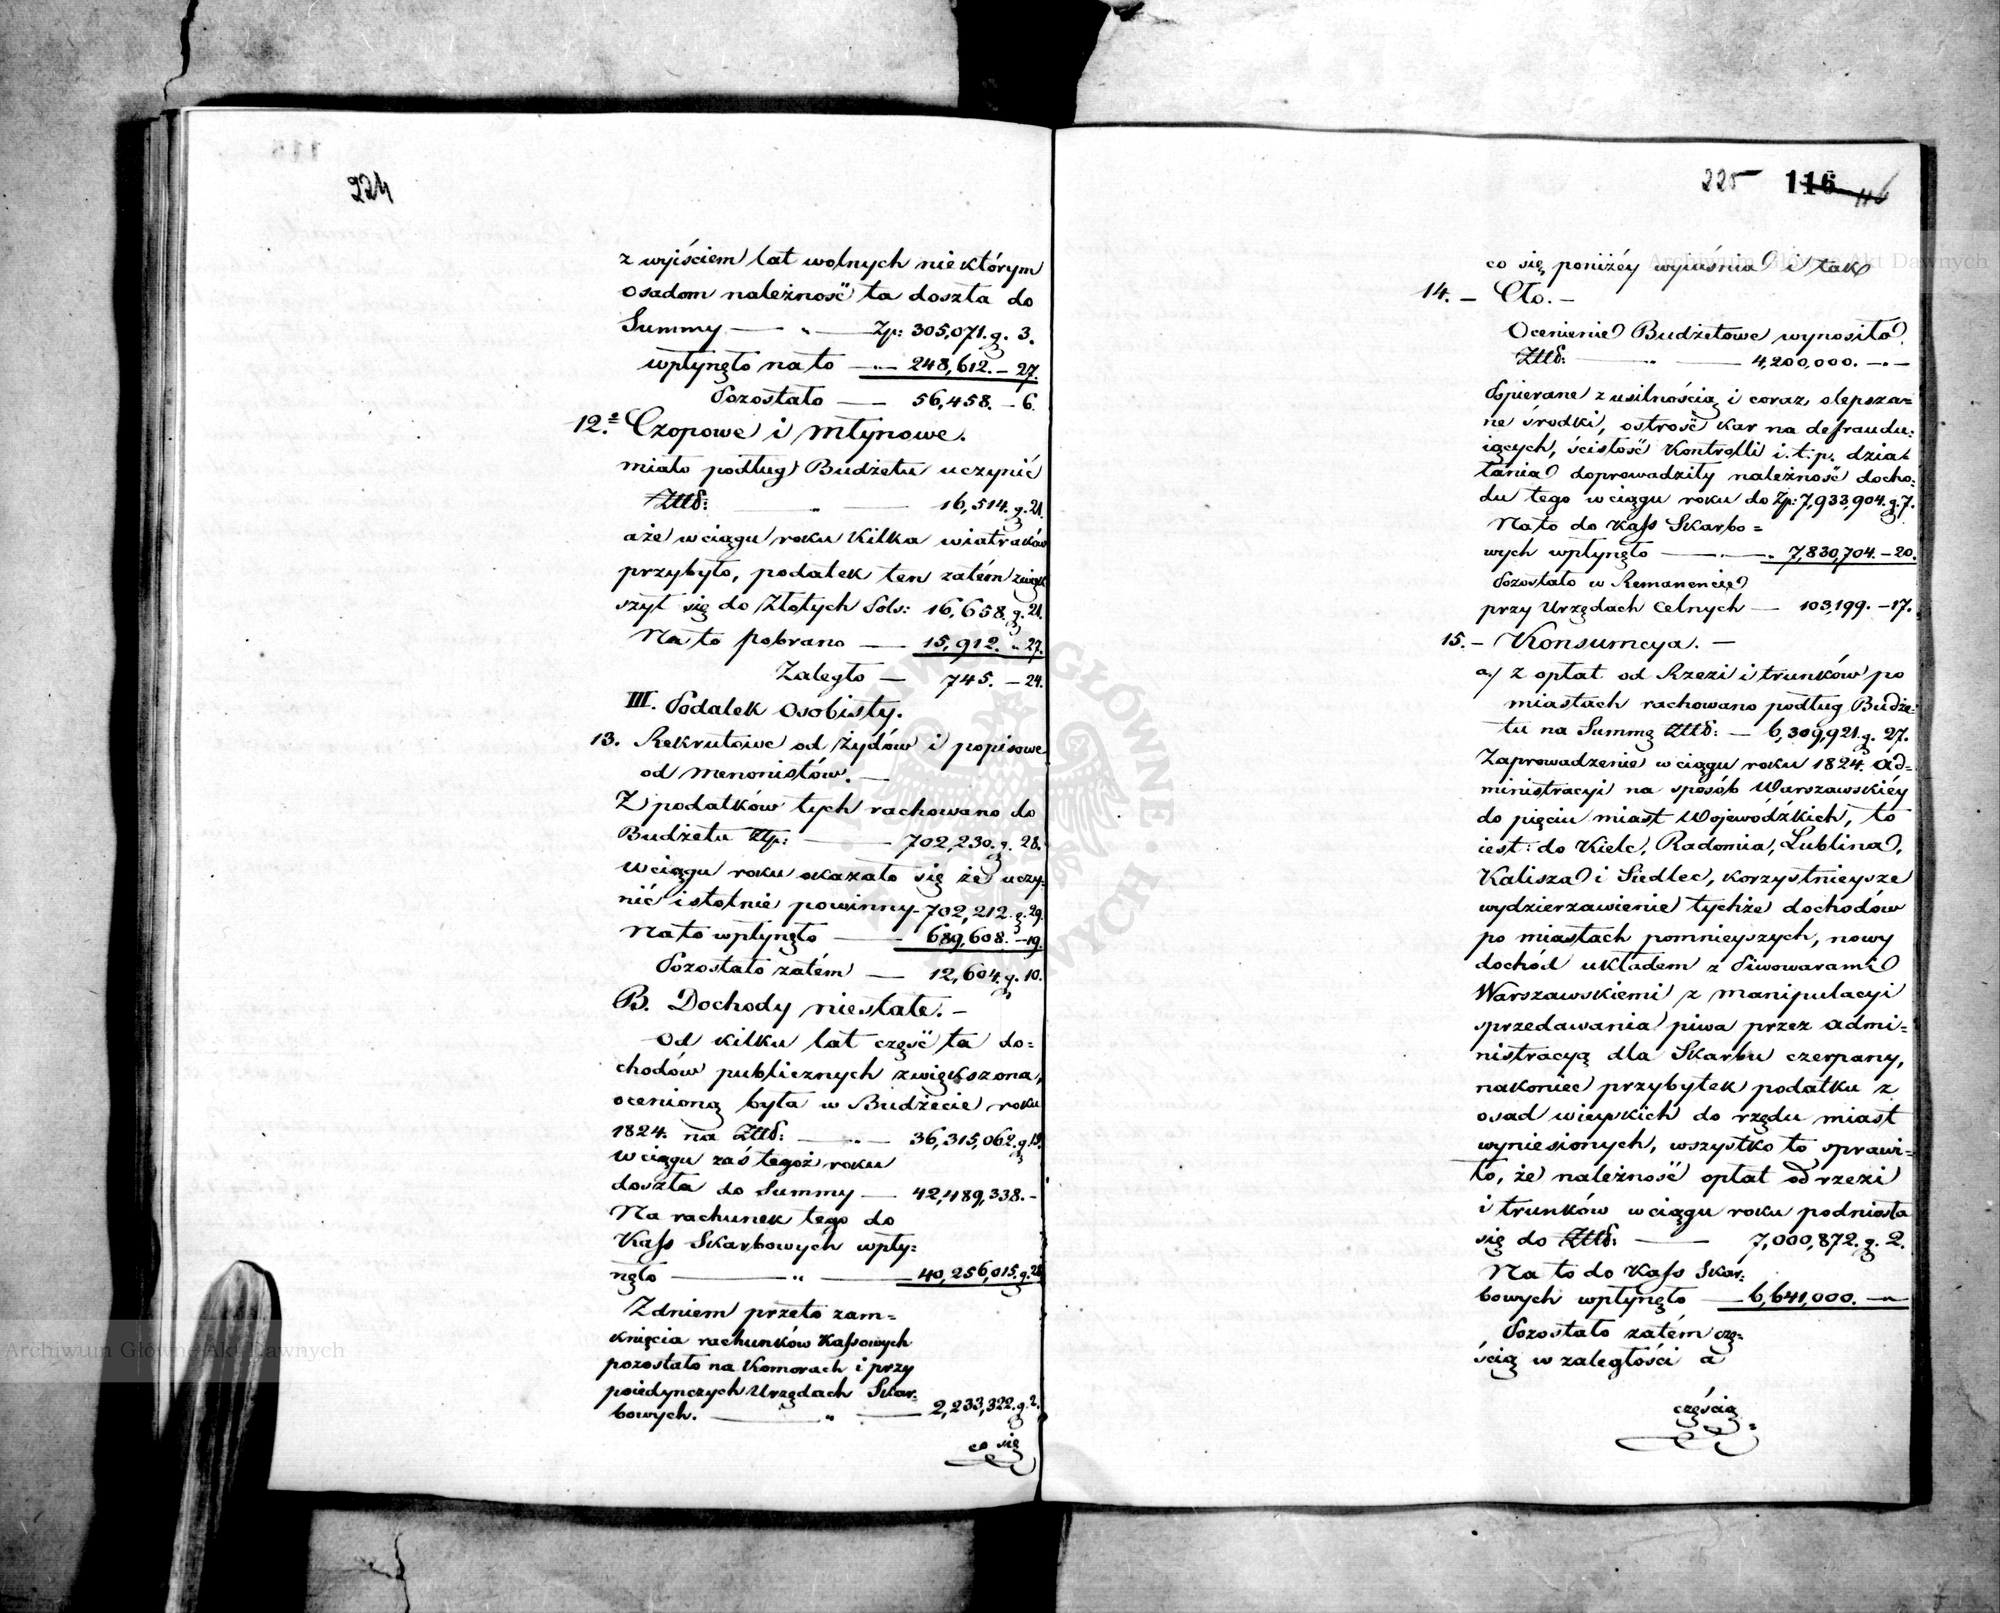 224
z wyiściem lat wolnych niektórym
osadom należność ta doszła do
Summy — „ — Zp: 305,071. g. 3.
wpłynęło na to — „ — 248,612. – 27.
Pozostało — 56,458. – 6.
12. Czopowe i Młynowe.
miało podług Budżetu uczynić
Złłd: „ — 16,514. g. 21.
a że w ciągu roku kilka wiatraków
przybyło, podatek ten zatém zwięk
szył się do Złotych Pols: 16,658. g. 21.
Na to pobrano — 15,912. „ 27.
Zaległo — 745. – 24.
III. Podatek Osobisty.
13. Rekrutowe od żydów i popisowe
od Menonistów. —
Z podatków tych rachowano do
Budżetu Złp: — 702,230. g. 28.
w ciągu roku okazało się że uczy-
nić istotnie powinny – 702,212. g. 29.
Na to wpłynęło — 689,608. – 19.
Pozostało zatém — 12,604. g. 10.
B. Dochody niestałe. –
Od kilku lat część ta do=
chodów publicznych zwiększona,
ocenioną była w Budżecie roku
1824. na Złłd: — „ — 36,315,062. g. 19.
w ciągu zaś tegoż roku
doszła do Summy — 42,489,338. –
Na rachunek tego do
Kass Skarbowych wpły=
nęło — „ — 40,256,015. g. 28
Z dniem przeto zam=
knięcia rachunków Kassowych
pozostało na Komorach i przy
poiedynczych Urzędach Skar-
bowych. — „ — 2,233,322. g. 2.
co się
225 116 116
co się poniżéy wyiaśnia i tak
14. – Cło. –
Ocenienie Budżetowe wynosiło
Złłd: „ — 4,200,000. – „ –
Spierane z usilnością i coraz olepsza=
ne środki, ostrość kar na defraudu-
iących, ścisłość Kontrolli i. t. p. dzia-
łania doprowadziły należność docho-
du tego w ciągu roku do Zp: 7,933,904. g. 7.
Na to do Kass Skarbo=
wych wpłynęło — „ — 7,830,704. – 20.
Pozostało w Remanencie
przy Urzędach Celnych — 103,199. – 17.
15. – Konsumcya. –
a/ z opłat od Rzezi i trunków po
miastach rachowano podług Budże-
tu na Summę Złłd: — 6,309,921. g. 27.
Zaprowadzenie w ciągu roku 1824. Ad-
ministracyi na sposób Warszawskiéy
do pięciu miast Wojewódzkich, to
iest: do Kielc, Radomia, Lublina,
Kalisza i Siedlec, korzystnieysze
wydzierzawienie tychże dochodów
po miastach pomnieyszych, nowy
dochód układem z Piwowarami
Warszawskiemi z manipulacyi
sprzedawania piwa przez admi=
nistracyą dla Skarbu czerpany,
nakoniec przybytek podatku z
osad wieyskich do rzędu miast
wyniesionych, wszystko to sprawi-
ło, że należność opłat od rzezi
i trunków w ciągu roku podniosła
się do Złłd: — 7,000,872. g. 2.
Na to do Kass Skar-
bowych wpłynęło — 6,641,000. – „ –
Pozostało zatém czę-
ścią w zaległości a
częścią
Archiwum Główne Akt Dawnych
Archiwum Główne Akt Dawnych